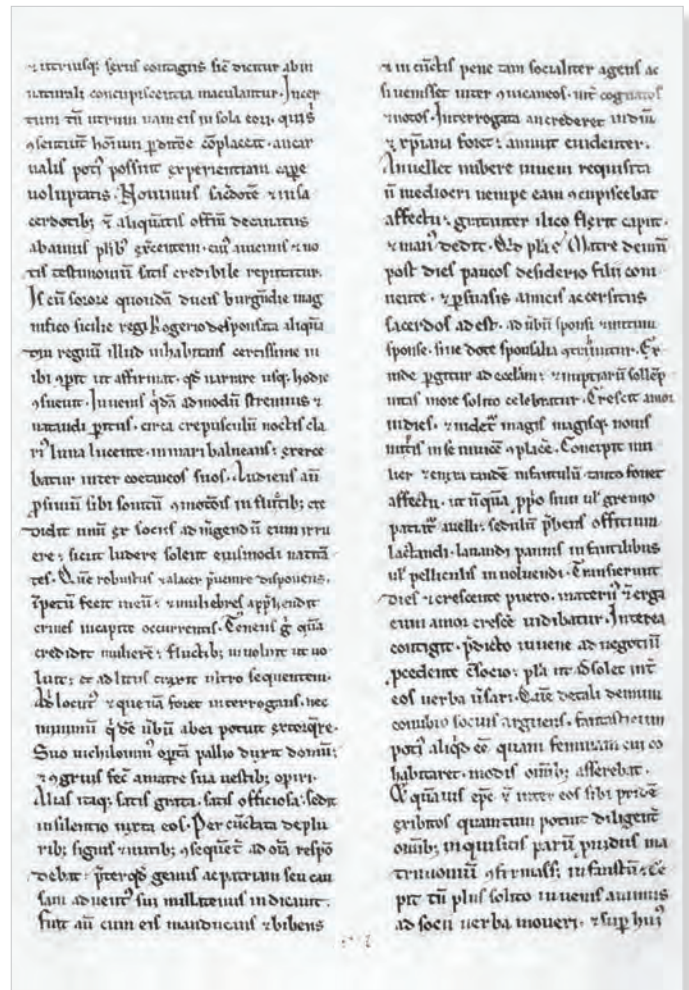 ⁊ utriusq; serus contagiis sic̄ dicitur ab in
naturali concupiscentia maculantur. Incer
tum tn̄ utrum nam eis in sola eoꝝ
ꝯsentiunt hōinum ꝑditōe cōplaceat. an car
nalis poti᷒ possint experientiam capere
uoluptatis. Nouimus sac̄dotē ⁊ in sa
cerdotib; ⁊ aliquātis offm̄ decanatus
testimoniū satis credibile reputatur.
Is cū sorore quondā ducis burgundie mag
nifico sicilie regi Rogerio desponsata aliqā
diu regnū illud inhabitans certissime in
ibi ꝯꝑit ut affirmat. qd̄ narrare usq; hodie
ꝯsueuit. Iuuenis q̇dā admodū strenuus ⁊
natandi ꝑitus. circa crepusculū noctis cla
ri᷒ luna lucente. in mari balneans: exerce
batur inter coetaneos suos. Audiens aū
ꝓximū sibi sonitū ꝯmotōis in fluctib; cre
didit unū ex sociis ad mergendū eum irru
ere: sicut ludere solent eiusmodi nata
tes. Qui robustus ⁊ alacer p̄uenire disponens.
īpetū fecit in eū: ⁊ muliebres app̄hendit
crines in capite occurrentis. Tenens g̊ quā
credidit mulierē: fluctib; inuoluit ut uo
luit: et ad litus traxit ultro sequentem.
Adlocut᷒ ⁊ que nā foret interrogans. nec
minimū q̇dē ūbū ab ei potuit extorq̄re.
Suo nichilomin᷒ opertā pallio duxit domū:
⁊ ꝯgruis fec̄ a matre sua uestib; opiri.
Alias itaq; satis grata. satis officiosa: sedit
in silentio iuxta eos. Per cūctata de plu
rib; signis ⁊ nutib; ꝯsequēt ad oīa respō
debat: p̄terqd̄ genus ac patriam seu cau
sam aduent᷒ sui nullatenus indicauit.
Fuit aū cum eis manducans ⁊ bibens
⁊ in cūctis pene tam socialiter agens ac
si uenisset inter ꝯuicaneos. int̄ cognatos
⁊ notos. Interrogata an crederet in dm̄
⁊ xp̄iana foret: annuit euidenter.
An uellet nubere iuueni requisita
n̄ mediocri nempe eam ꝯcupiscebat
affectu: gratanter ilico flexit caput.
⁊ man᷒ dedit. Qd̄ pla Matre demū
post dies paucos desiderio filii con
niuente. ⁊ ꝑsuasis amicis accersitus
sacerdos adest. ad ūbū sponsi ⁊ nutum
sponse. sine dote sponsalia ꝯtrahuntur. Ex
inde ꝑgitur ad eccl̄am: ⁊ nuptiarū sollēp
nitas more solito celebratur. Crescit amor
in dies. ⁊ uidet̄ magis magisq; nouis
nuptis in se inuicē ꝯplacē. Concepit mu
lier ⁊ enixa tandē infantulū tanto fouet
affectu. ut n̄ quā ꝓprio sinu ul̓ gremio
patiat̄ auelli: sedulū p̄bens officium
lactandi. lauandi pannis in fantilibus
ul̓ pelliculis inuoluendi. Transierunt
dies ⁊ crescente puero. matern᷒ ⁊ erga
eum amor crescē uidebatur. Interea
contigit. p̄dicto iuuene ad negotiū
ꝓcedente c̄ socio: plā ut adsolet int̄
eos uerba ūsari. Que de tali demum
conubio socius arguens. fantasticum
poti᷒ aliqd̄ eē quam feminam cui co
habitaret. modis oīb; asserebat.
inter eos sibi
exibitos quantum potuit diligent̄
oīnib; inquisitis parū prudens ma
trimoniū ꝯfirmass; infaustū: Ce
pit tn̄ plus solito iuuenis animus
ad socii uerba moueri. ⁊ suꝑ hui᷒